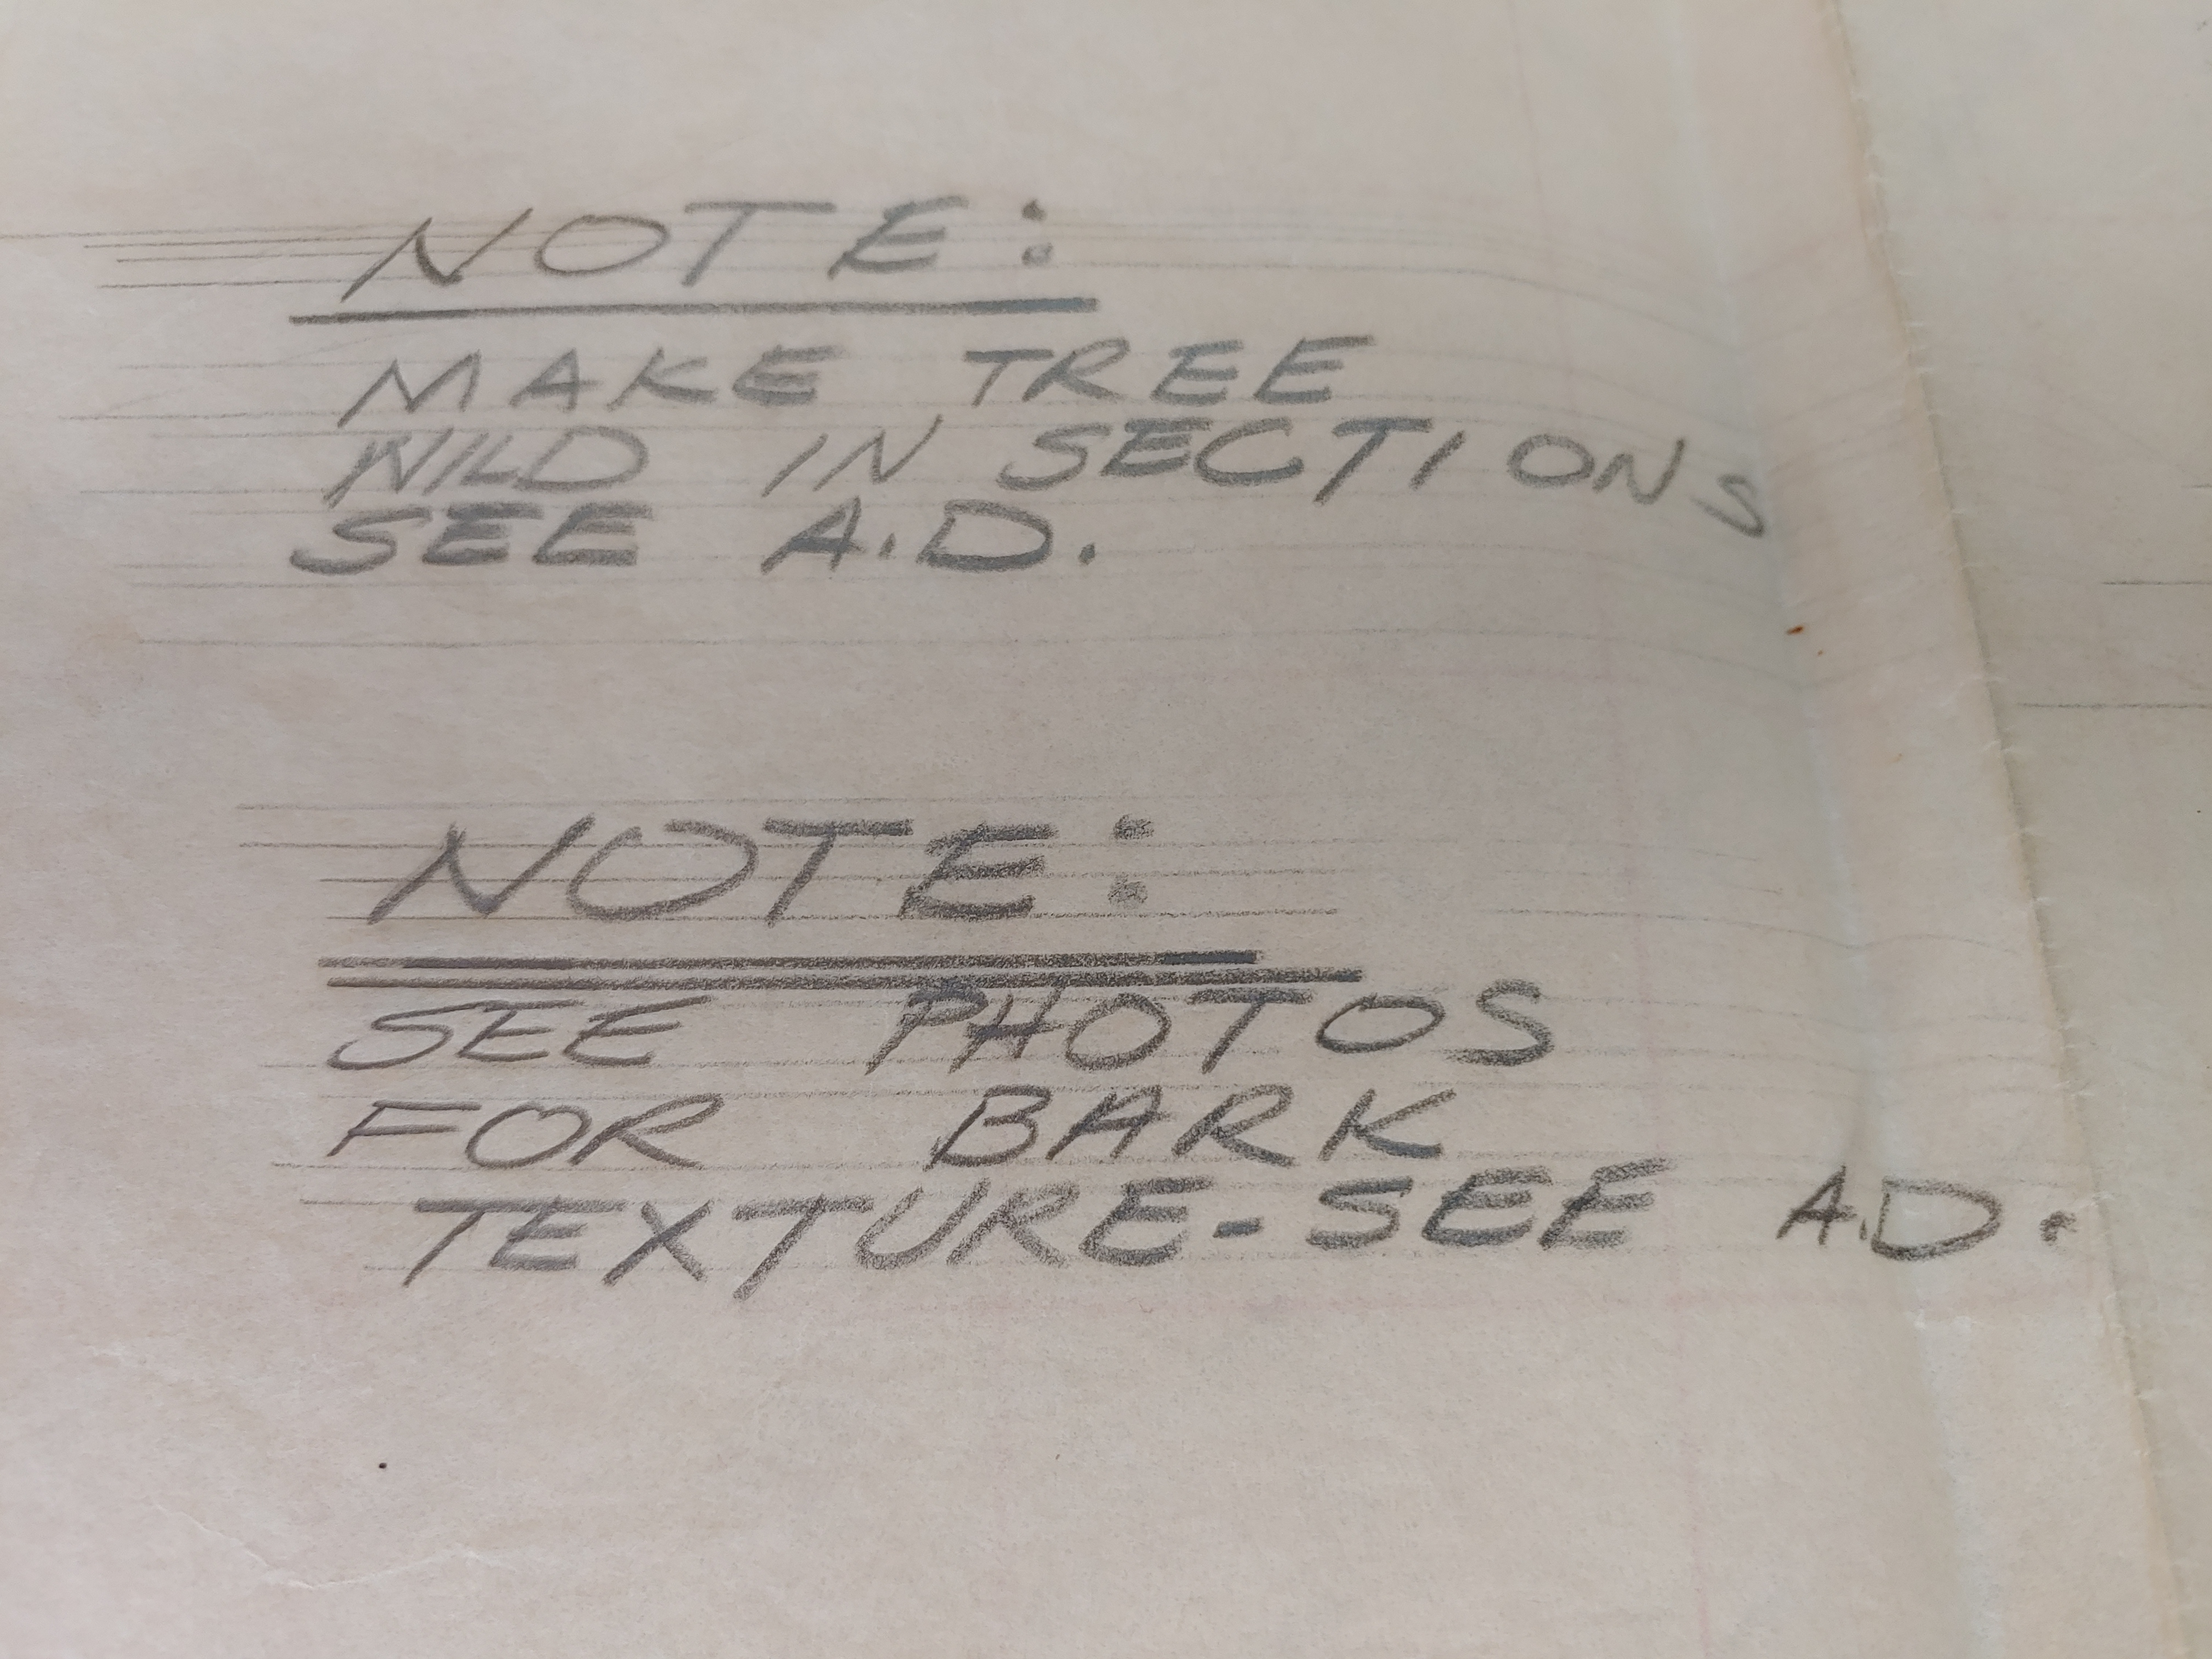 NOTE:
MAKE TREE
WILD IN SECTIONS
SEE A.D.
NOTE:
SEE PHOTOS
FOR BARK
TEXTURE-SEE A.D.